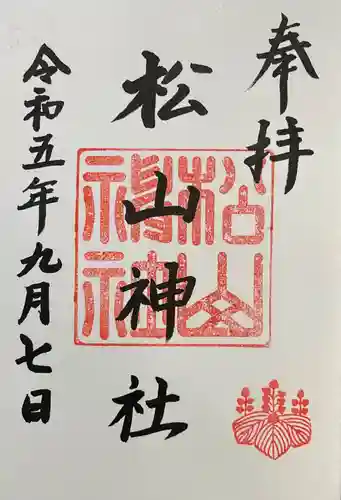 奉拝
松山神社
令和五年九月七日
松山
神社